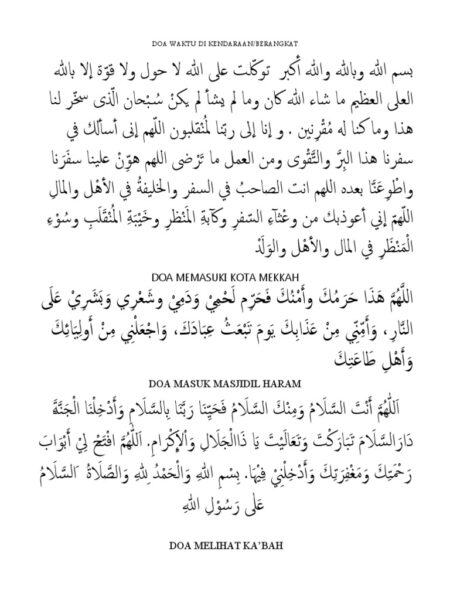 DOA WAKTU DI KENDARAAN/BERANGKAT
بسم الله وبالله والله أكبر توكّلت على الله لا حول ولا قوّة إلا بالله
العلى العظيم ما شاء الله كان وما لم يشأ لم يكنْ سُبْحان الّذى سخّر لنا
هذا وما كنا له مُقْرِنين . و إنا إلى ربّنا لمُنْقلبون اللّهم إنى أسألك في
سفرنا هذا البِرَّ والتَّقْوى ومن العمل ما تَرْضى اللهم هوِّنْ علينا سفَرَنا
واطْوِعَنَّا بعده اللهم انت الصاحبُ في السفر والخليفةُ في الأهْل والمالِ
اللّهمّ إني أعوذبك من وعْثآءِ السّفرِ وكآبةِ المَنْظرِ وخَيْبَةِ المُنْقَلَبِ وسُوْءِ
الْمَنْظَرِ في المال والأهْل والوَلَدْ
DOA MEMASUKI KOTA MEKKAH
اللَّهُمَّ هَذَا حَرَمُكَ وأَمْنُكَ فَحَرِّم لَحْمِيْ وَدَمِيْ وشَعْرِي وَبَشَرِيْ عَلَى
النَّارِ، وَأَمِّنِّي مِنْ عَذَابِكَ يَومَ تَبْعَثُ عِبَادَكَ، وَاجْعَلْنِي مِنْ أَولِيَائِكَ
وَأَهْلِ طَاعَتِكَ
DOA MASUK MASJIDIL HARAM
اَللّٰهُمَّ أَنْتَ السَّلَامُ وَمِنْكَ السَّلَامُ فَحَيِّنَا رَبَّنَا بِالسَّلَامِ وَأَدْخِلْنَا الْجَنَّةَ
دَارَالسَّلَامَ تَبَارَكْتَ وَتَعَالَيْتَ يَا ذَاالْجَلَالِ وَالْاِكْرَامِ. اَللّٰهُمَّ افْتَحْ لِيْ أَبْوَابَ
رَحْمَتِكَ وَمَغْفِرَتِكَ وَأَدْخِلْنِيْ فِيْهَا. بِسْمِ اللهِ وَالْحَمْدُ لِلهِ وَالصَّلَاةُ وَالسَّلَامُ
عَلَى رَسُوْلِ اللهِ
DOA MELIHAT KA'BAH